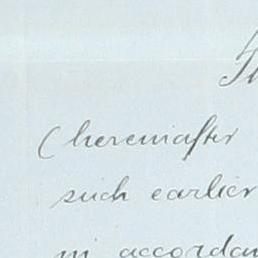 (hereinafter
such earlier
in accordan